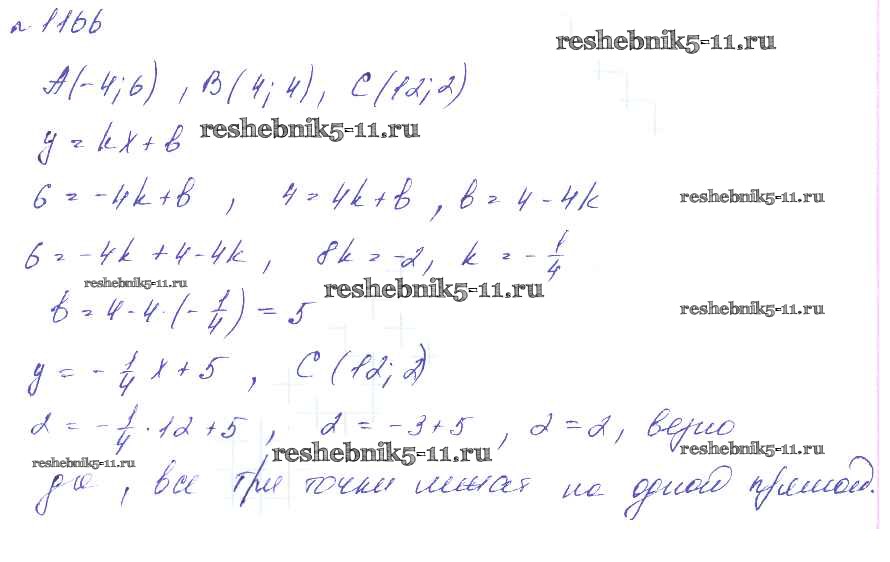 № 1166
reshebnik5-11.ru
A(-4; 6) , B(4; 4), C(12; 2)
y = kx + b reshebnik5-11.ru
6 = -4k + b , 4 = 4k + b , b = 4 - 4k reshebnik5-11.ru
6 = -4k + 4 - 4k , 8k = -2, k = -1/4
reshebnik5-11.ru reshebnik5-11.ru
b = 4 - 4·(-1/4) = 5 reshebnik5-11.ru
y = -1/4 x + 5 , C(12; 2)
2 = -1/4 · 12 + 5 , 2 = -3 + 5 , 2 = 2, верно
reshebnik5-11.ru reshebnik5-11.ru reshebnik5-11.ru
да , все три точки лежат на одной прямой.